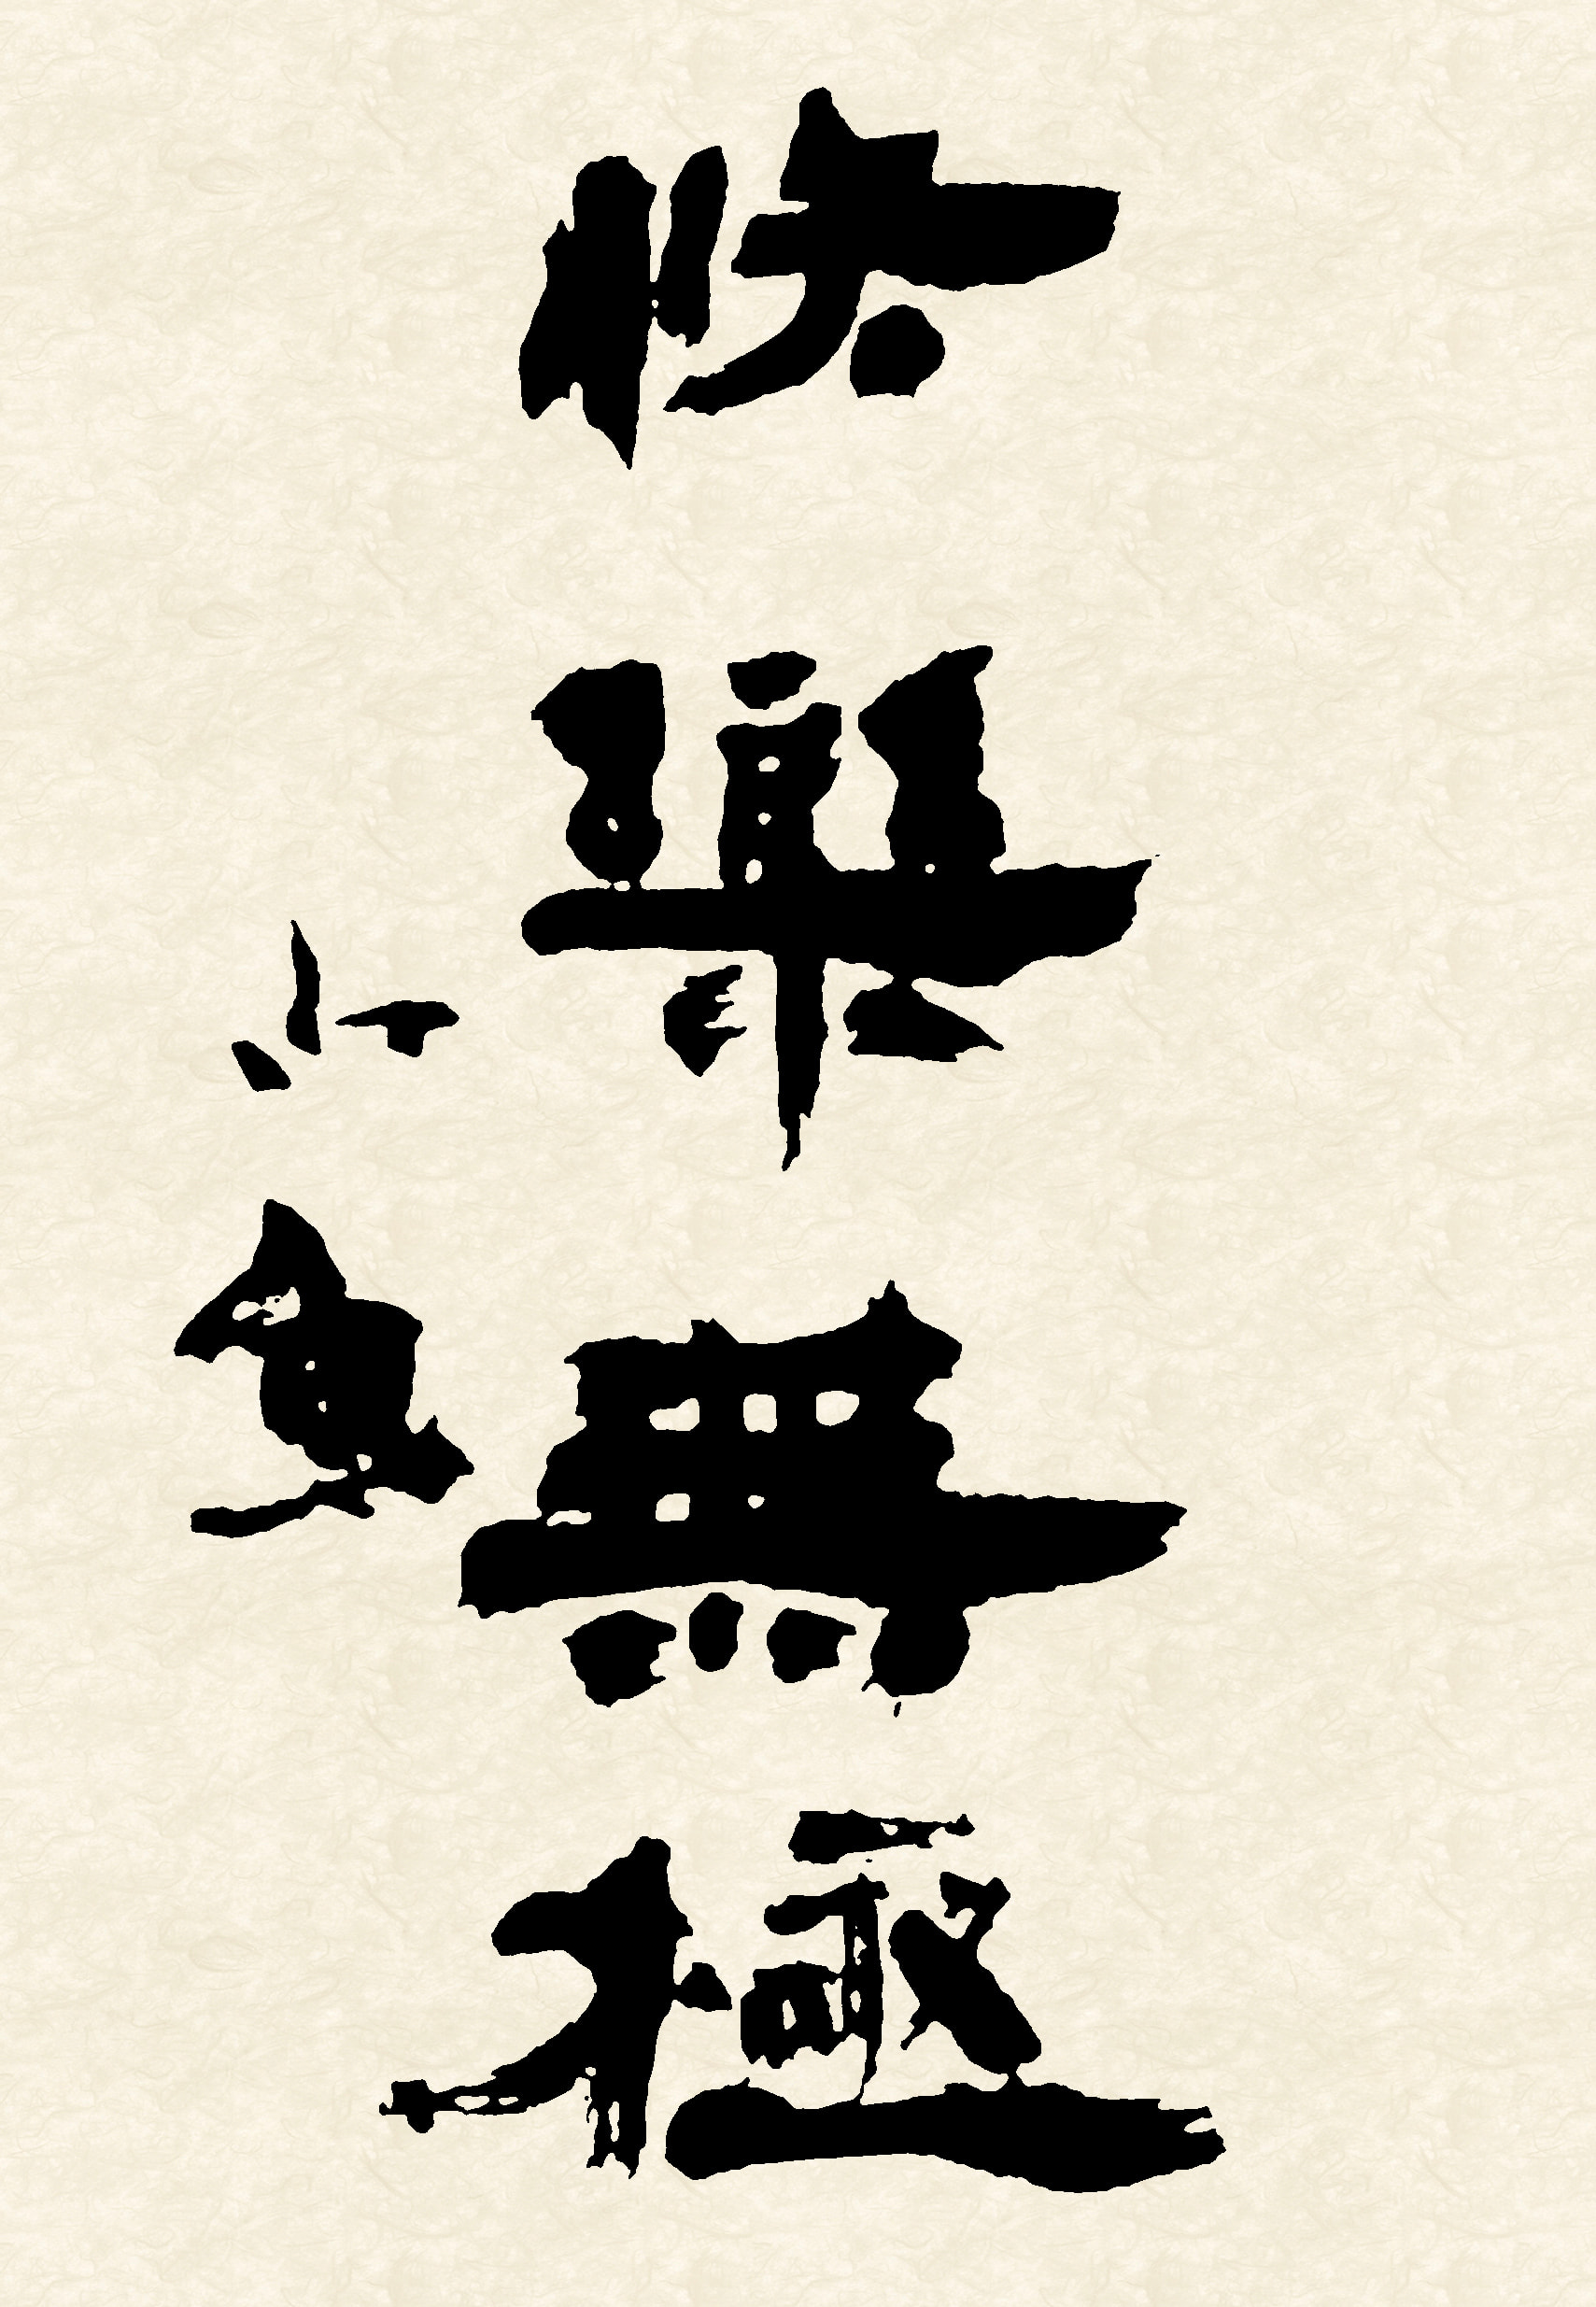 快樂無極
小魚